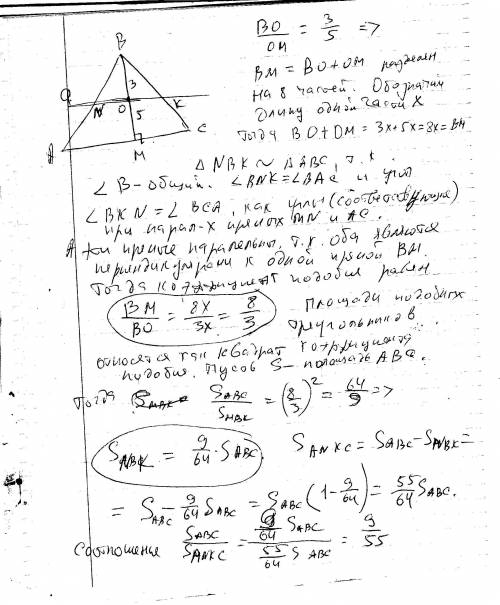 B
3
Q
N
O
5
K
A
M
C
BO/OM = 3/5 =>
BM = BO + OM разделен
на 8 частей. Обозначим
длину одной части X
Тогда BO + OM = 3x + 5x = 8x = BM
△ NBK ~ △ABC, т.к.
∠ B - общий. ∠BNK = ∠BAC и угол
∠BKN = ∠BCA, как углы (соответствующие)
при парал-х прямых MN и AC.
А эти прямые паралельны, т.к. оба являются
перпендикулярами к одной прямой BM.
Тогда коэффициент подобия равен
BM/BO = 8x/3x = 8/3
Площади подобных
треугольников
относятся как квадрат коэффициента
подобия. Пусть S - площадь ABC.
Тогда S_ABC/S_NBK = (8/3)² = 64/9 =>
S_NBK = 9/64 · S_ABC.
S_ANKC = S_ABC - S_NBK =
= S_ABC - 9/64 S_ABC = S_ABC (1 - 9/64) = 55/64 S_ABC.
Соотношение S_ABC/S_ANKC = 9/64 S_ABC / 55/64 S_ABC = 9/55